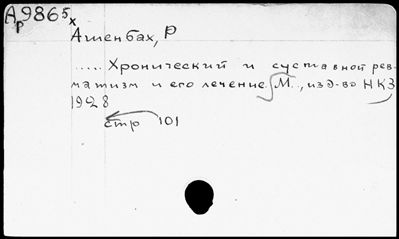 Ар 9865х
Ашенбах, Р
..... Хронический и суставной рев-
матизм и его лечение. М., изд-во НКЗ
1928
стр 101